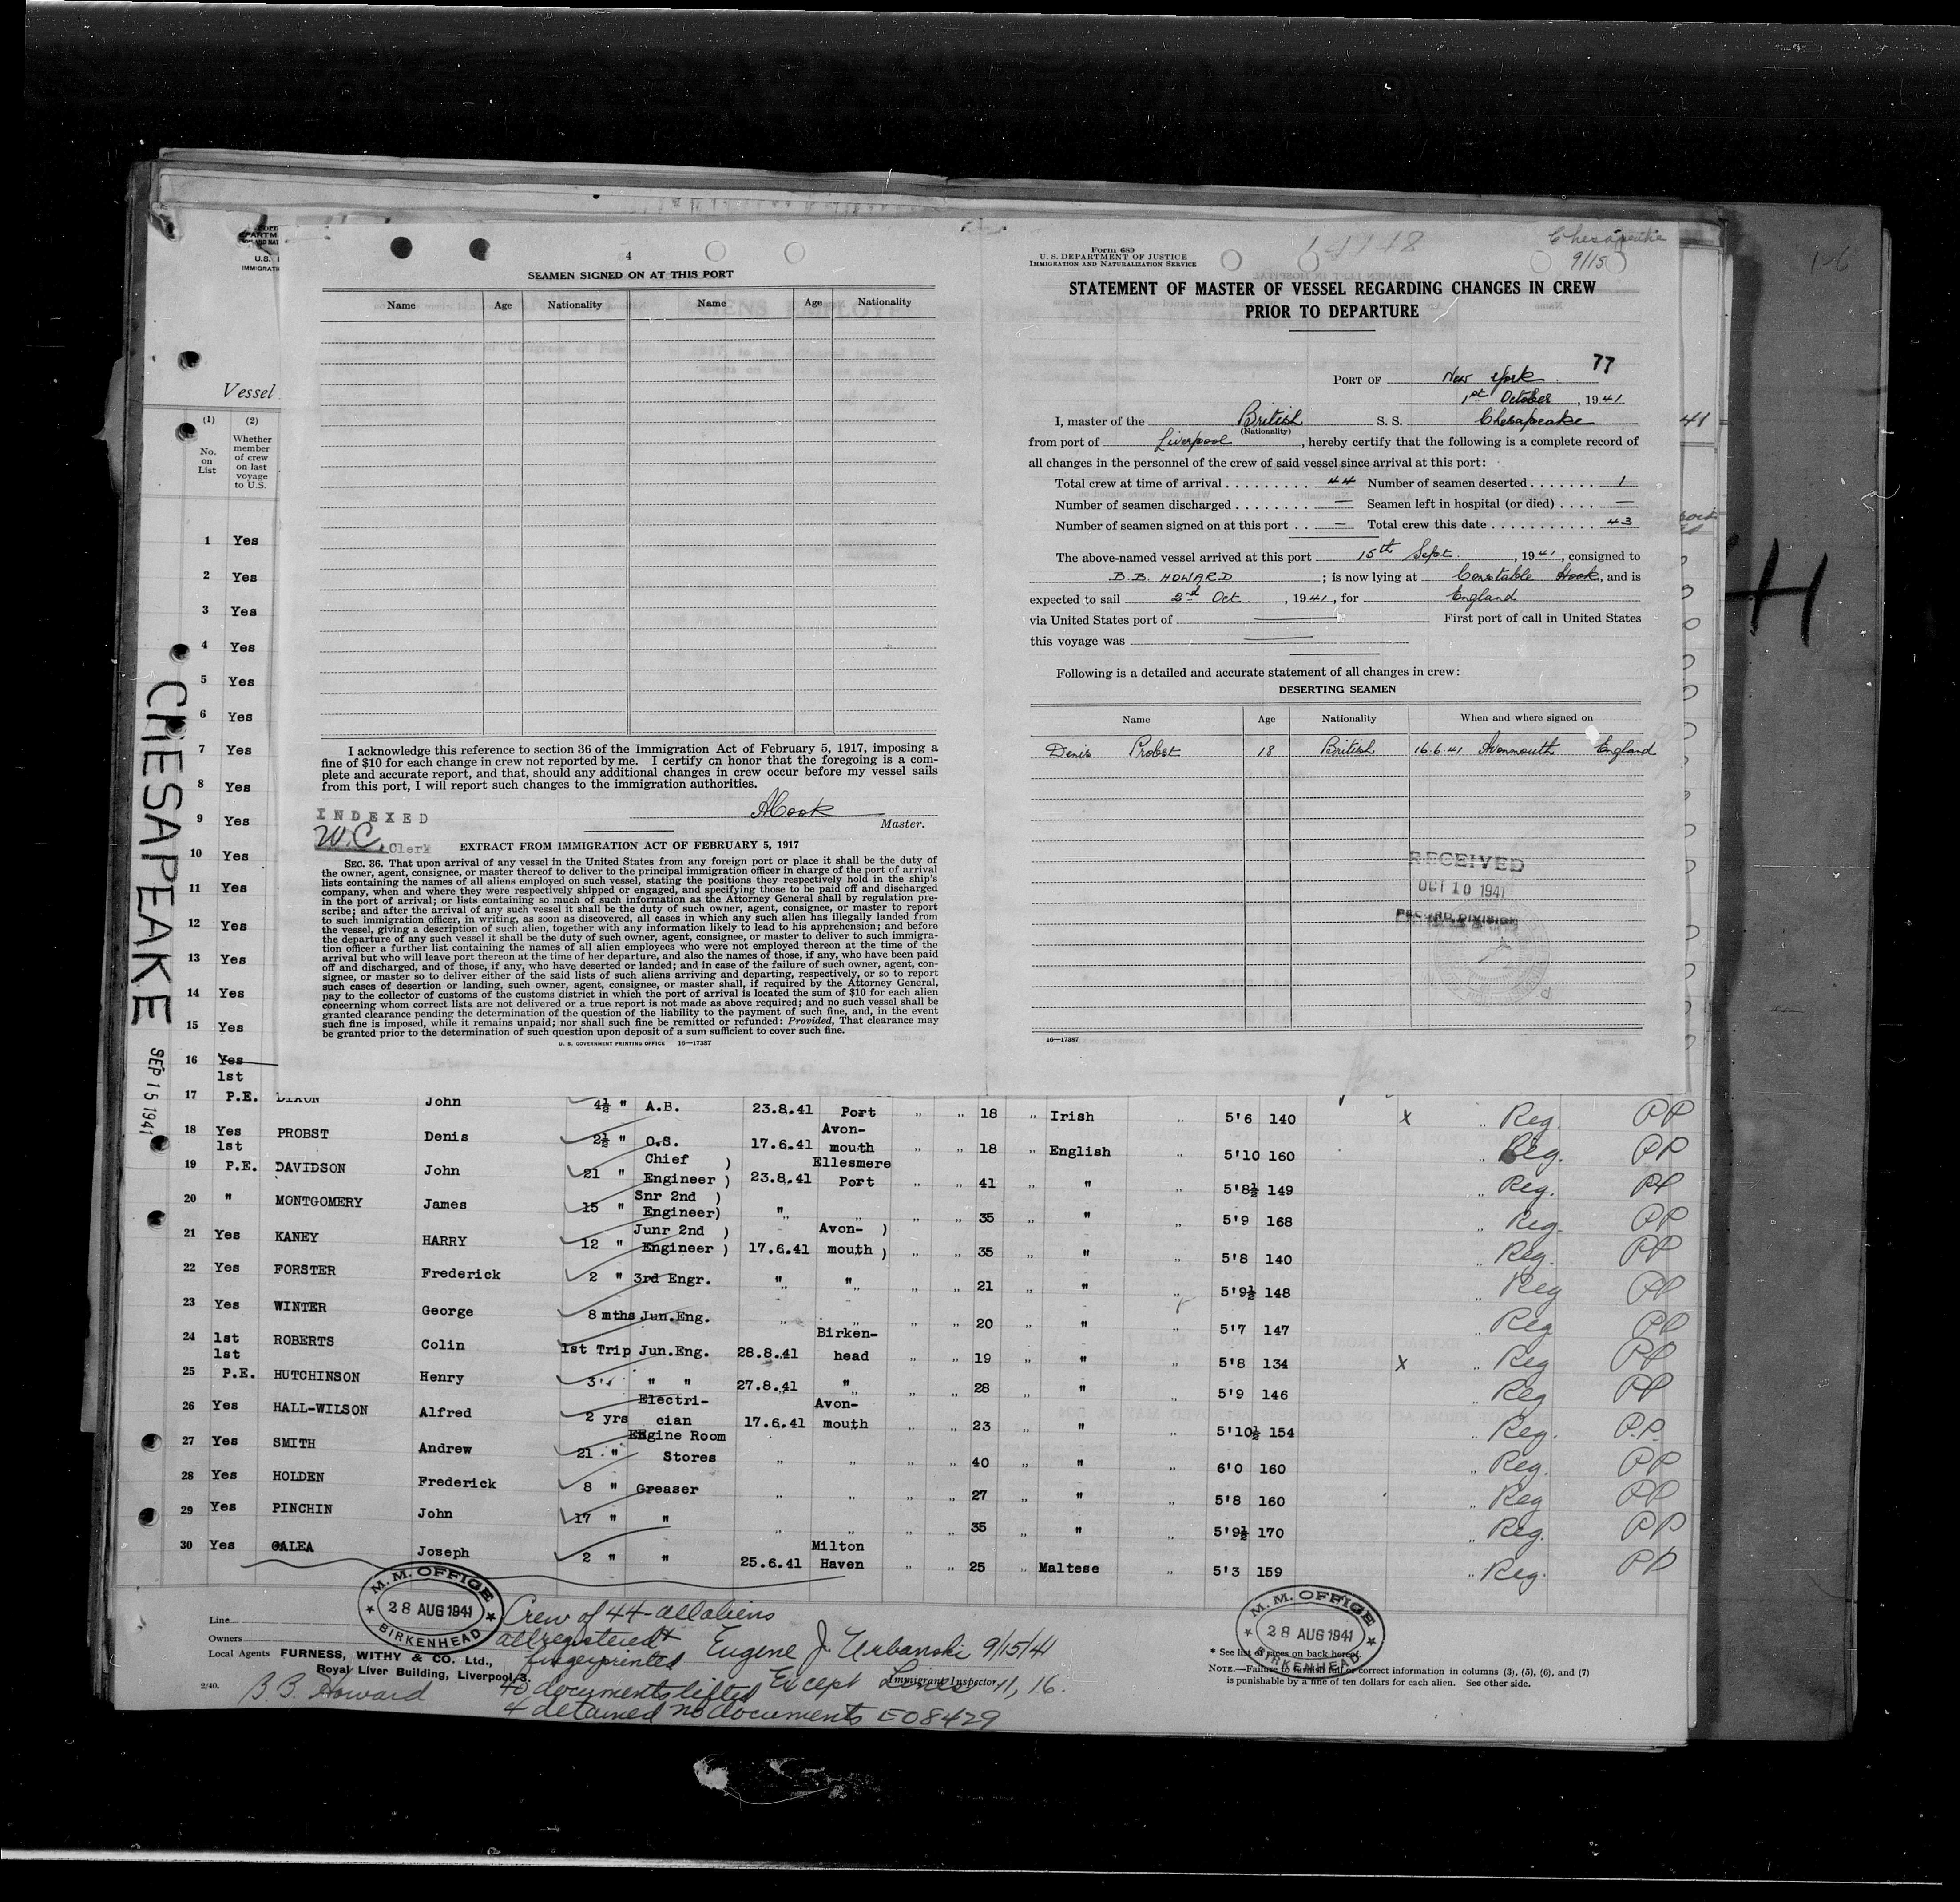 Chesapeake
9/15
4
SEAMEN SIGNED ON AT THIS PORT
Name Age Nationality Name Age Nationality
I acknowledge this reference to section 36 of the Immigration Act of February 5, 1917, imposing a
fine of $10 for each change in crew not reported by me. I certify on honor that the foregoing is a com-
plete and accurate report, and that, should any additional changes in crew occur before my vessel sails
from this port, I will report such changes to the immigration authorities.
INDEXED
W.C. Clerk
Master.
EXTRACT FROM IMMIGRATION ACT OF FEBRUARY 5, 1917
SEC. 36. That upon arrival of any vessel in the United States from any foreign port or place it shall be the duty of
the owner, agent, consignee, or master thereof to deliver to the principal immigration officer in charge of the port of arrival
lists containing the names of all aliens employed on such vessel, stating the positions they respectively hold in the ship's
company, when and where they were respectively shipped or engaged, and specifying those to be paid off and discharged
in the port of arrival; or lists containing so much of such information as the Attorney General shall by regulation pre-
scribe; and after the arrival of any such vessel it shall be the duty of such owner, agent, consignee, or master to report
to such immigration officer, in writing, as soon as discovered, all cases in which any such alien has illegally landed from
the vessel, giving a description of such alien, together with any information likely to lead to his apprehension; and before
the departure of any such vessel it shall be the duty of such owner, agent, consignee, or master to deliver to such immigra-
tion officer a further list containing the names of all alien employees who were not employed thereon at the time of the
arrival but who will leave port thereon at the time of her departure, and also the names of those, if any, who have been paid
off and discharged, and of those, if any, who have deserted or landed; and in case of the failure of such owner, agent, con-
signee, or master so to deliver either of the said lists of such aliens arriving and departing, respectively, or so to report
such cases of desertion or landing, such owner, agent, consignee, or master shall, if required by the Attorney General,
pay to the collector of customs of the customs district in which the port of arrival is located the sum of $10 for each alien
concerning whom correct lists are not delivered or a true report is not made as above required; and no such vessel shall be
granted clearance pending the determination of the question of the liability to the payment of such fine, and, in the event
such fine is imposed, while it remains unpaid; nor shall such fine be remitted or refunded: Provided, That clearance may
be granted prior to the determination of such question upon deposit of a sum sufficient to cover such fine.
U. S. GOVERNMENT PRINTING OFFICE 16—17387
Form 689
U. S. DEPARTMENT OF JUSTICE
IMMIGRATION AND NATURALIZATION SERVICE
STATEMENT OF MASTER OF VESSEL REGARDING CHANGES IN CREW
PRIOR TO DEPARTURE
77
PORT OF New York
1st October, 1941
I, master of the British S. S. Chesapeake
(Nationality)
from port of Liverpool, hereby certify that the following is a complete record of
all changes in the personnel of the crew of said vessel since arrival at this port:
Total crew at time of arrival 44 Number of seamen deserted 1
Number of seamen discharged — Seamen left in hospital (or died) —
Number of seamen signed on at this port — Total crew this date 43
The above-named vessel arrived at this port 15th Sept., 1941, consigned to
B.B. HOWARD; is now lying at Constable Hook, and is
expected to sail 2nd Oct, 1941, for England
via United States port of First port of call in United States
this voyage was
Following is a detailed and accurate statement of all changes in crew:
DESERTING SEAMEN
Name Age Nationality When and where signed on
Denis Probst 18 British 16.6.41 Avonmouth England
RECEIVED
OCT 10 1941
RECORD DIVISION
16—17387
Vessel
(1) (2)
No. on List
Whether member of crew on last voyage to U.S.
1 Yes
2 Yes
3 Yes
4 Yes
5 Yes
6 Yes
7 Yes
8 Yes
9 Yes
10 Yes
11 Yes
12 Yes
13 Yes
14 Yes
15 Yes
16 Yes
CHESAPEAKE
SEP 15 1941
17 1st P.E. DIXON John 4½ " A.B. 23.8.41 Port " " 18 " Irish " 5'6 140 X " Reg. PP
18 Yes PROBST Denis 2½ " O.S. 17.6.41 Avon-mouth " " 18 " English " 5'10 160 " Reg. PP
19 1st P.E. DAVIDSON John 21 " Chief Engineer ) 23.8.41 Ellesmere Port " " 41 " " " 5'8½ 149 " Reg. PP
20 " MONTGOMERY James 15 " Snr 2nd Engineer) " " " " 35 " " " 5'9 168 " Reg. PP
21 Yes KANEY HARRY 12 " Junr 2nd Engineer ) 17.6.41 Avon-mouth ) " " 35 " " " 5'8 140 Reg. PP
22 Yes FORSTER Frederick 2 " 3rd Engr. " " " " 21 " " " 5'9½ 148 " Reg PP
23 Yes WINTER George 8 mths Jun.Eng. " " " " 20 " " " 5'7 147 " Reg PP
24 1st ROBERTS Colin 1st Trip Jun.Eng. 28.8.41 Birken-head " " 19 " " " 5'8 134 X " Reg PP
25 1st P.E. HUTCHINSON Henry 3 " " " 27.8.41 " " " 28 " " 5'9 146 " Reg PP
26 Yes HALL-WILSON Alfred 2 yrs Electri-cian 17.6.41 Avon-mouth " " 23 " " " 5'10½ 154 " Reg. P.P.
27 Yes SMITH Andrew 21 " Engine Room Stores " " " " 40 " " " 6'0 160 " Reg. PP
28 Yes HOLDEN Frederick 8 " Greaser " " " " 27 " " " 5'8 160 " Reg PP
29 Yes PINCHIN John 17 " " " " " " 35 " " " 5'9½ 170 " Reg. PP
30 Yes GALEA Joseph 2 " " 25.6.41 Milton Haven " " 25 " Maltese " 5'3 159 " Reg. PP
M. M. OFFICE
28 AUG 1941
BIRKENHEAD
Line
Owners
Local Agents FURNESS, WITHY & CO. Ltd.,
Royal Liver Building, Liverpool, 3.
2/40.
B. B. Howard
Crew of 44-all aliens
all registered +
fingerprinted Eugene J. Urbanski 9/15/41
Immigrant Inspector
40 documents lifted Except Lines 11, 16.
4 detained no documents E08429
M. M. OFFICE
28 AUG 1941
BIRKENHEAD
* See list of races on back hereof.
NOTE.—Failure to furnish full or correct information in columns (3), (5), (6), and (7)
is punishable by a fine of ten dollars for each alien. See other side.
H